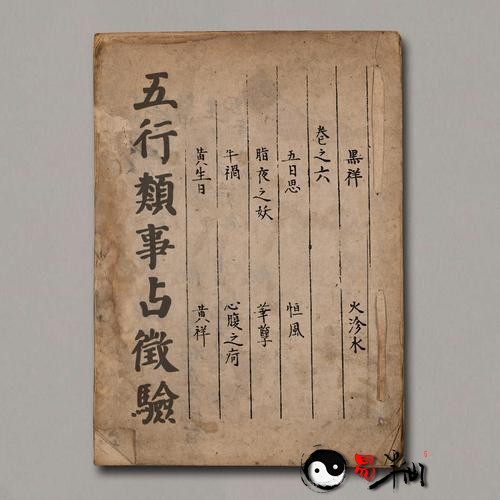 黑祥 火沴水
卷之六
五日思 恒風
脂夜之妖 華孽
牛禍 心腹之疴
黃生日 黃祥
五行類事占徵驗
易半仙